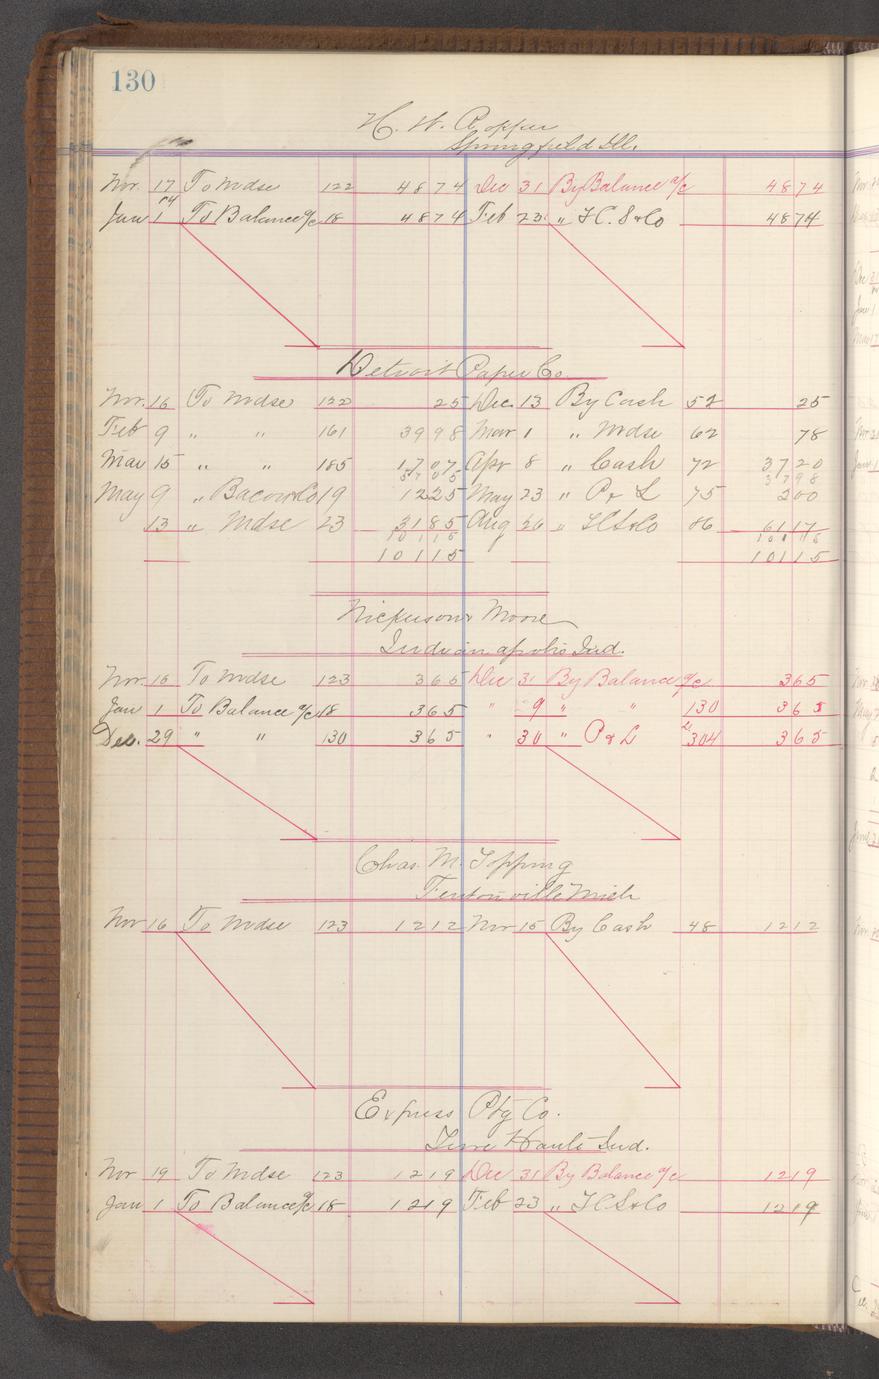 130
H. W. Ropper
Springfield Ill.
Nov. 17 To Mdse 122 4874 Dec 31 By Balance a/c 4874
Jan 1 To Balance a/c 18 4874 Feb 23 " F.C.S & Co 4874
Detroit Paper Co.
Nov. 16 To Mdse 122 25 Dec. 13 By Cash 52 25
Feb 9 " " 161 3998 Mar 1 " Mdse 62 78
Mar 15 " " 185 1707 Apr 8 " Cash 72 3720
5705 3798
May 9 " Bacon & Co 19 1225 May 23 " P & L 75 200
13 " Mdse 23 3185 Aug 26 " F.C.S & Co 86 6117
10115 10115
10115 10115
Nickerson & Moore
Indianapolis Ind.
Nov. 16 To Mdse 123 365 Dec 31 By Balance a/c 365
Jan 1 To Balance a/c 18 365 " 9 " " 130 365
Dec. 29 " " 130 365 " 30 " P & L 304 365
Chas. M. Topping
Fentonville Mich
Nov 16 To Mdse 123 1212 Nov 15 By Cash 48 1212
Express Ptg Co.
Terre Haute Ind.
Nov 19 To Mdse 123 1219 Dec 31 By Balance a/c 1219
Jan 1 To Balance a/c 18 1219 Feb 23 " F.C.S & Co 1219